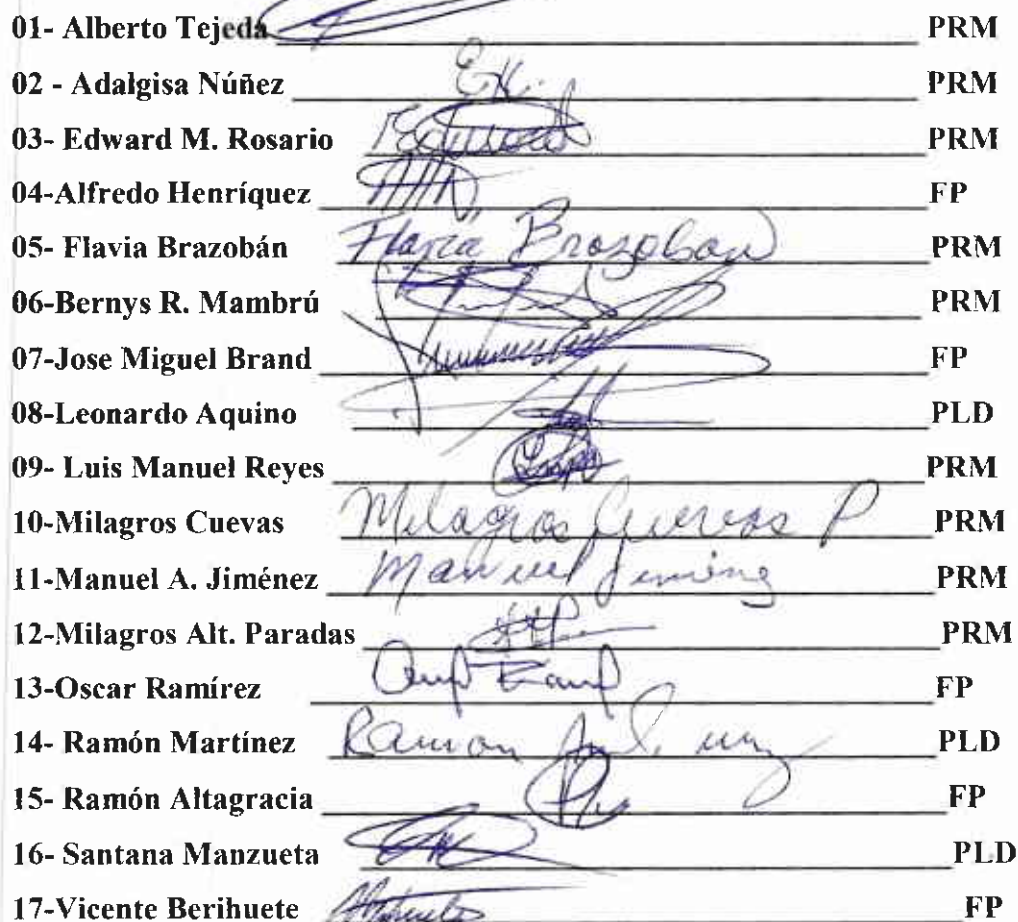 01- Alberto Tejeda PRM
02 - Adalgisa Núñez PRM
03- Edward M. Rosario PRM
04-Alfredo Henríquez FP
05- Flavia Brazobán Flavia Brazoban PRM
06-Bernys R. Mambrú PRM
07-Jose Miguel Brand FP
08-Leonardo Aquino PLD
09- Luis Manuel Reyes PRM
10-Milagros Cuevas Milagros Cuevas P PRM
11-Manuel A. Jiménez Manuel Jiménez PRM
12-Milagros Alt. Paradas PRM
13-Oscar Ramírez FP
14- Ramón Martínez Ramon PLD
15- Ramón Altagracia FP
16- Santana Manzueta PLD
17-Vicente Berihuete FP